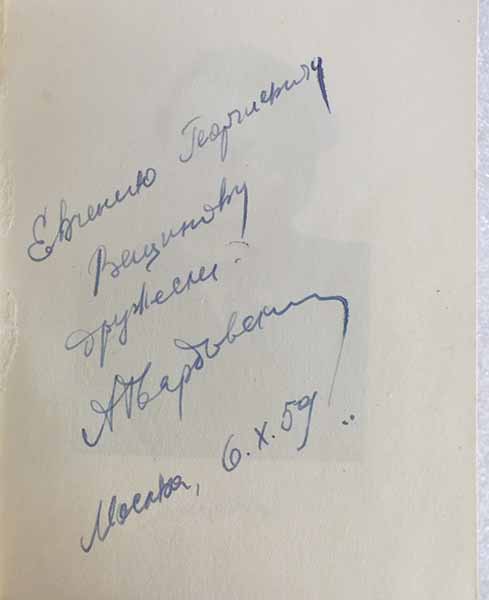 Евгению Георгиевичу
Вещинову
дружески
АТвардовский
Москва, 6.X.59